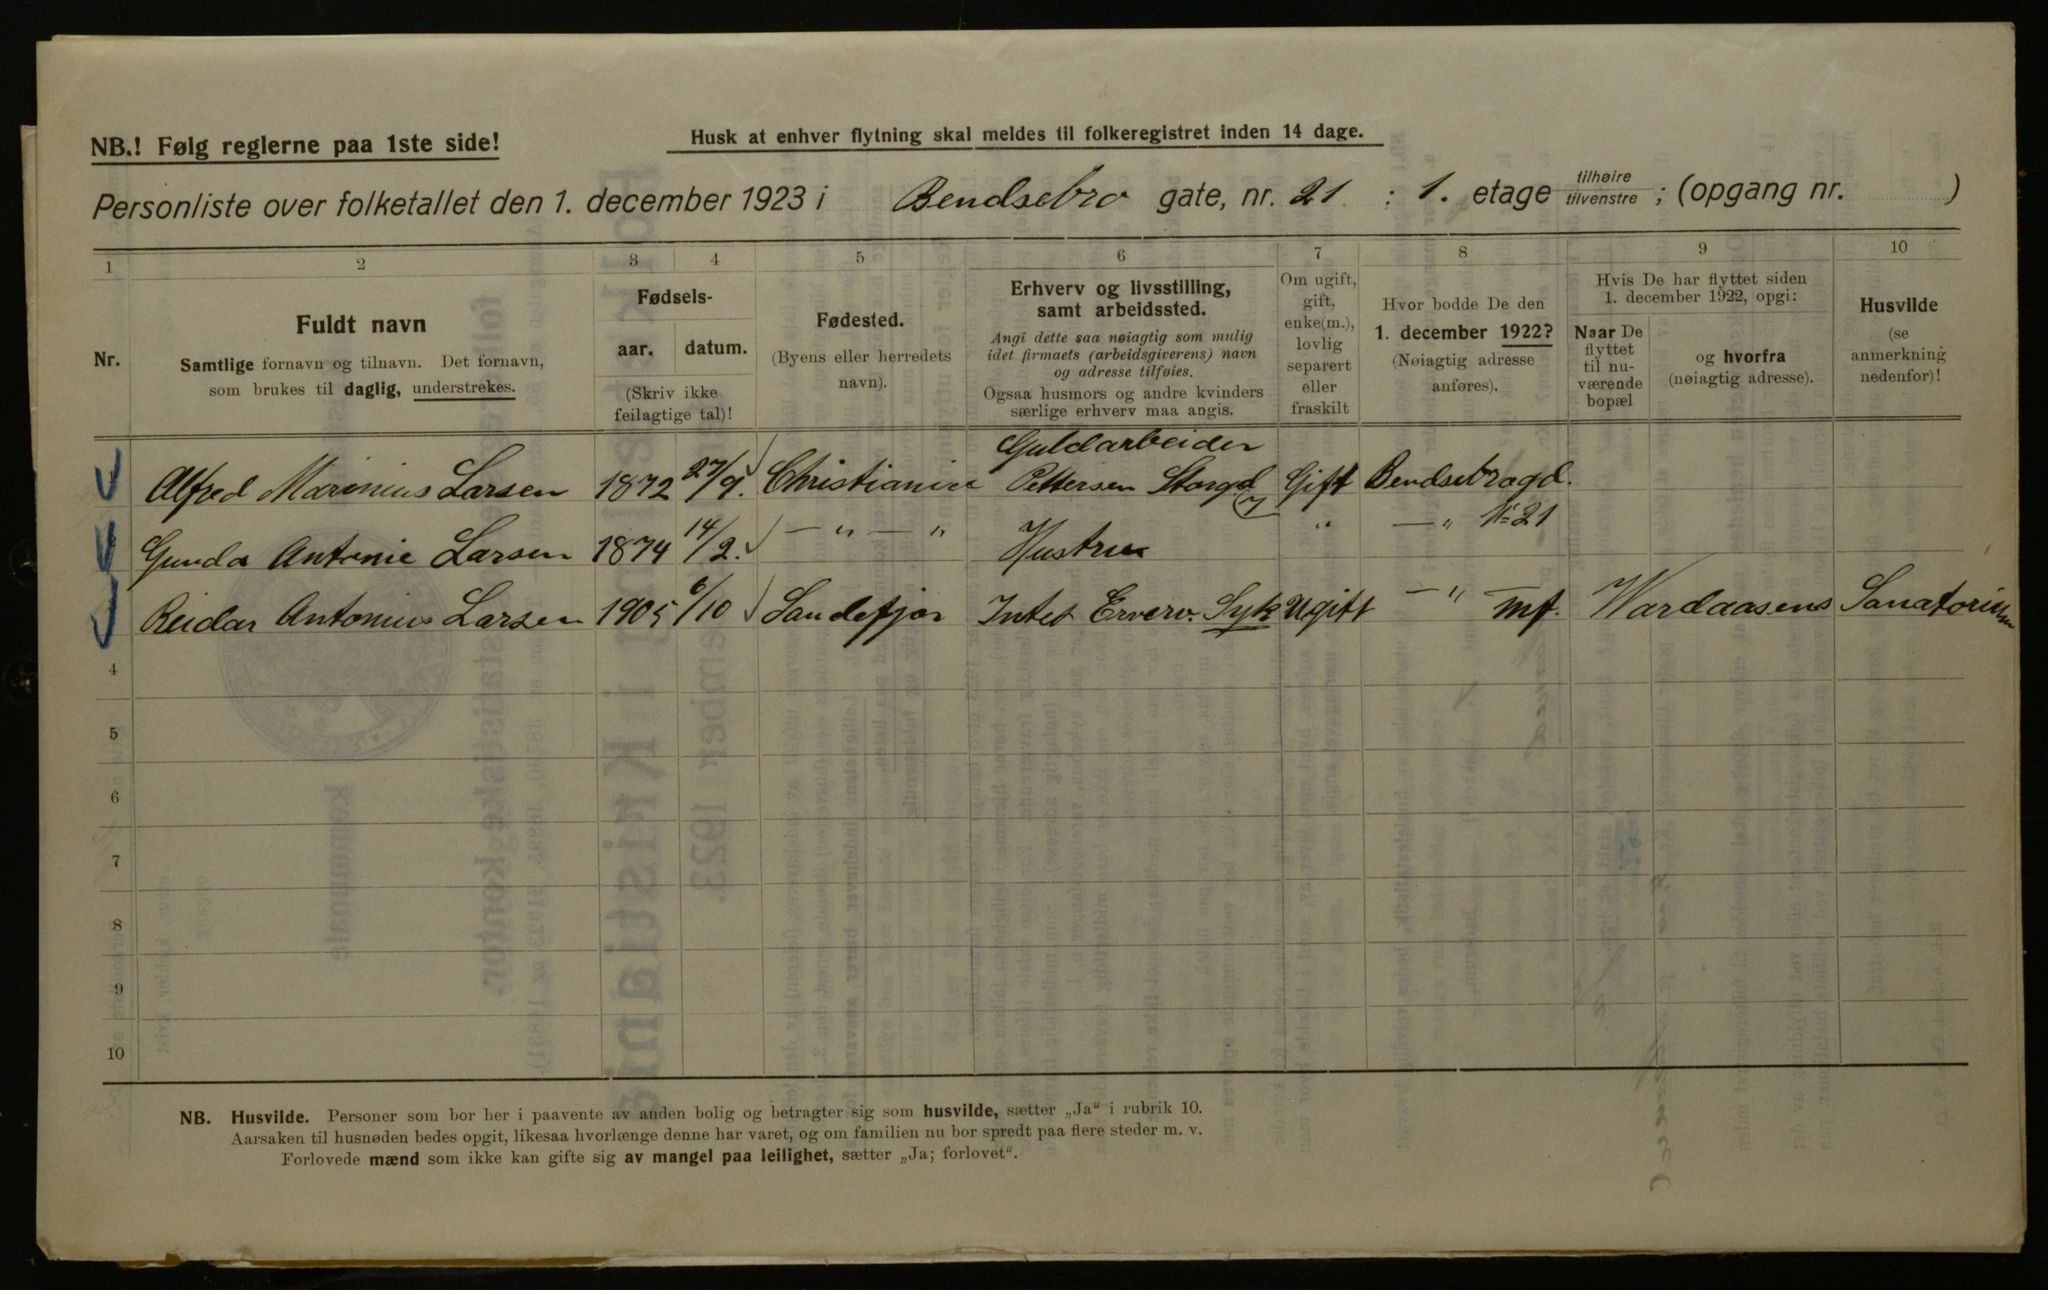 NB.! Følg reglerne paa 1ste side!
Husk at enhver flytning skal meldes til folkeregistret inden 14 dage.
Personliste over folketallet den 1. december 1923 i Bendsebro gate, nr. 21 : 1. etage tilhøire tilvenstre ; (opgang nr. )
1 2 3 4 5 6 7 8 9 10
Nr.
Fuldt navn
Samtlige fornavn og tilnavn. Det fornavn,
som brukes til daglig, understrekes.
Fødsels-
aar. datum.
(Skriv ikke
feilagtige tal)!
Fødested.
(Byens eller herredets
navn).
Erhverv og livsstilling,
samt arbeidssted.
Angi dette saa nøiagtig som mulig
idet firmaets (arbeidsgiverens) navn
og adresse tilføies.
Ogsaa husmors og andre kvinders
særlige erhverv maa angis.
Om ugift,
gift,
enke(m.),
lovlig
separert
eller
fraskilt
Hvor bodde De den
1. december 1922?
(Nøiagtig adresse
anføres).
Hvis De har flyttet siden
1. december 1922, opgi:
Naar De
flyttet
til nu-
værende
bopæl
og hvorfra
(nøiagtig adresse).
Husvilde
(se
anmerkning
nedenfor)!
Guldarbeider
Alfred Marinius Larsen 1872 27/9. Christiania Pettersen Storgd 7 Gift Bendsebrogd.
Gunda Antonie Larsen 1874 14/2. — " — " Hustru " — " No 21
Reidar Antonius Larsen 1905 6/10 Sandefjor Intet Erverv. Syk Ugift — " — Mf. Wardaasens Sanatorium
4
5
6
7
8
9
10
NB. Husvilde. Personer som bor her i paavente av anden bolig og betragter sig som husvilde, sætter „Ja“ i rubrik 10.
Aarsaken til husnøden bedes opgit, likesaa hvorlænge denne har varet, og om familien nu bor spredt paa flere steder m. v.
Forlovede mænd som ikke kan gifte sig av mangel paa leilighet, sætter „Ja; forlovet“.